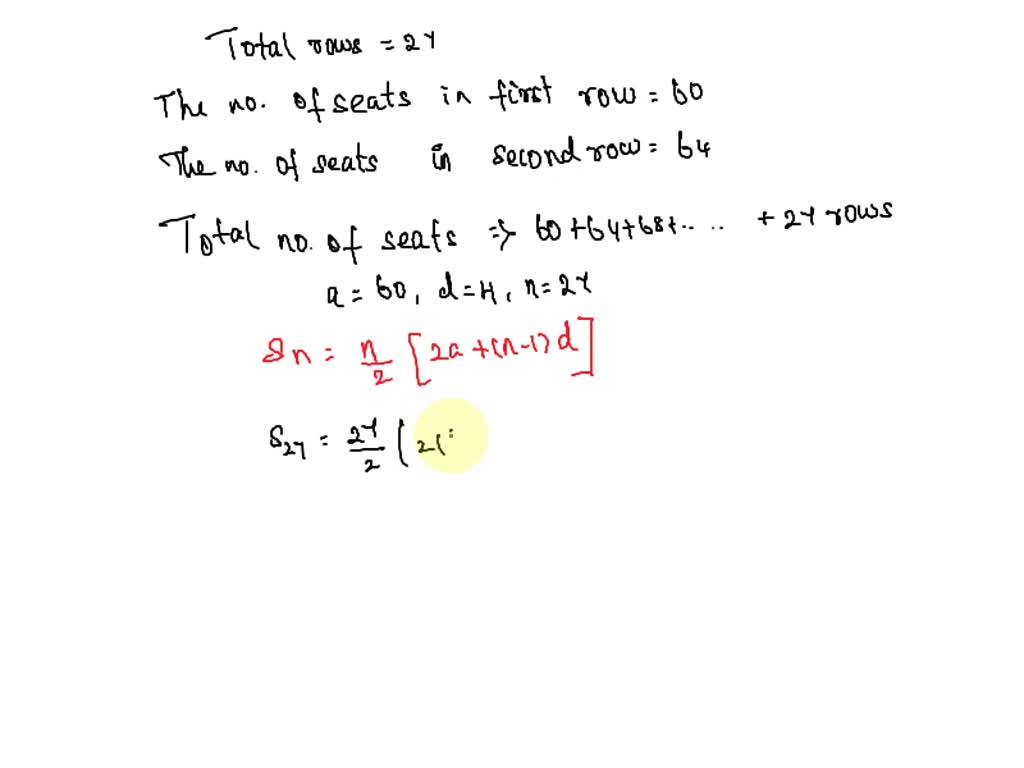 Total rows = 27
The no. of seats in first row = 60
The no. of seats in second row = 64
Total no. of seats => 60+64+68+.... + 27 rows
a = 60, d=4, n=27
Sn = n/2 [2a+(n-1)d]
S27 = 27/2 (2(